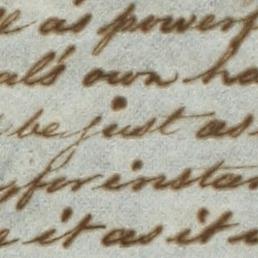 as powerf
al's own ha
be just as
for instan
it as it